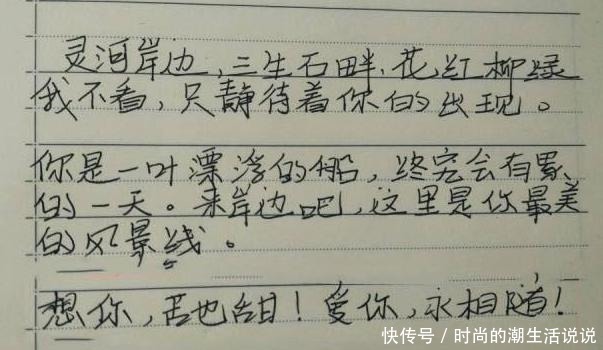 灵河岸边,三生石畔,花红柳绿
我不看,只静待着你的出现。
你是一叶漂浮的船,终究会有累
的一天。来岸边吧,这里是你最美
的风景线。
想你,苦也甜!爱你,永相随!
快传号/时尚的潮生活说说